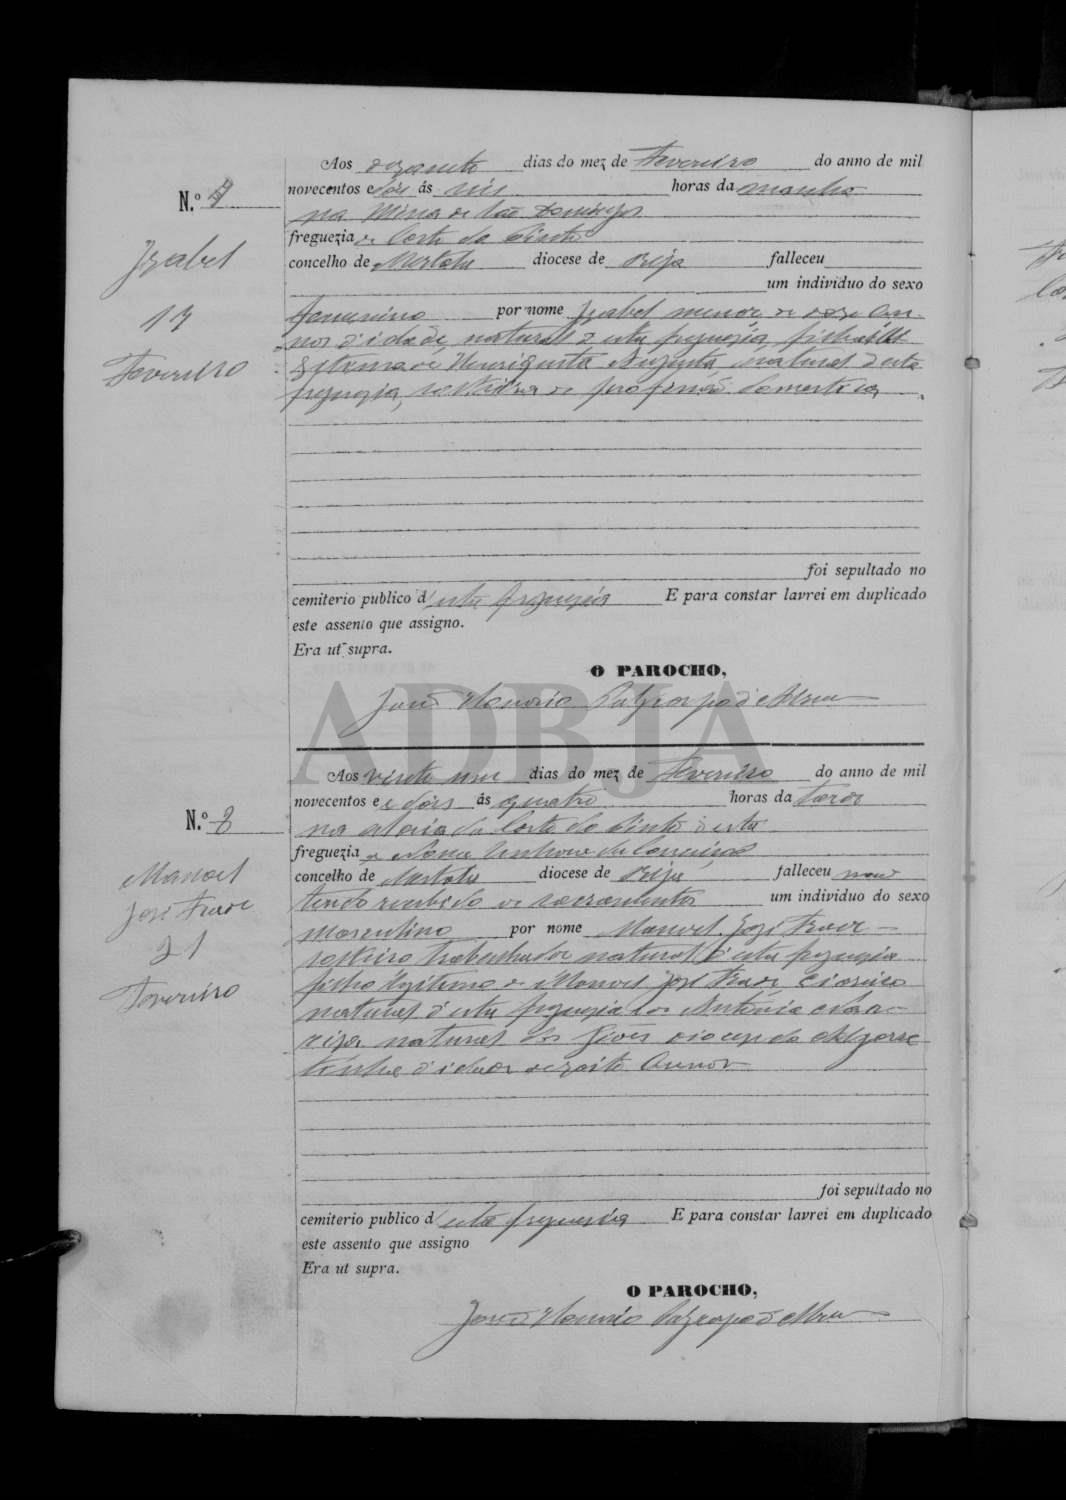 Aos dezasete dias do mez de Fevereiro do anno de mil
novecentos e dois ás seis horas da manha
N.º 7
na Mina de São Domingos
freguezia de Corte do Pinto
Izabel
concelho de Mertola diocese de Beja falleceu
um individuo do sexo
17
femenino por nome Izabel menor de doze an-
nos d'idade, natural d'esta freguezia, filha
Fevereiro
de Henriqueta Augusta, natural d'esta
freguezia, solteira de profissão domestica
foi sepultado no
cemiterio publico d'esta freguezia E para constar lavrei em duplicado
este assento que assigno.
Era ut supra.
O PAROCHO,
ADBJA
Aos vinte um dias do mez de Fevereiro do anno de mil
novecentos e dois ás quatro horas da tarde
N.º 8
na aldeia da Corte do Pinto d'esta
freguezia de Nossa Senhora da Conceição
Manoel
concelho de Mertola diocese de Beja falleceu não
José Frade
tendo recebido os sacramentos um individuo do sexo
21
mascculino por nome Manoel José Frade
Fevereiro
solteiro trabalhador natural d'esta freguezia
filho legitimo de Manoel José Frade
natural d'esta freguezia e de Antonia Ma-
ria natural dos Giões diocese do Algarve
tinha d'idade dezoito annos
foi sepultado no
cemiterio publico d'esta freguezia E para constar lavrei em duplicado
este assento que assigno
Era ut supra.
O PAROCHO,